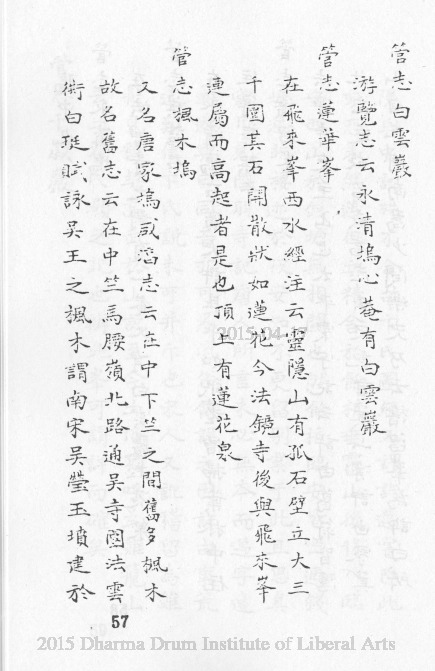 管志白雲巖
游覽志云永清塢心菴有白雲巖
管志蓮華峯
在飛來峯西水經注云靈隱山有孤石壁立大三
千圍其石開散狀如蓮花今法鏡寺後與飛來峯
連屬而高起者是也頂上有蓮花泉
管志楓木塢
又名唐家塢咸淳志云在中下竺之間舊多楓木
故名舊志云在中竺馬腰嶺北路通吳寺園法雲
衖白珽賦詠吳王之楓木謂南宋吳瑩玉墳建於
57
2015-04-17
2015 Dharma Drum Institute of Liberal Arts